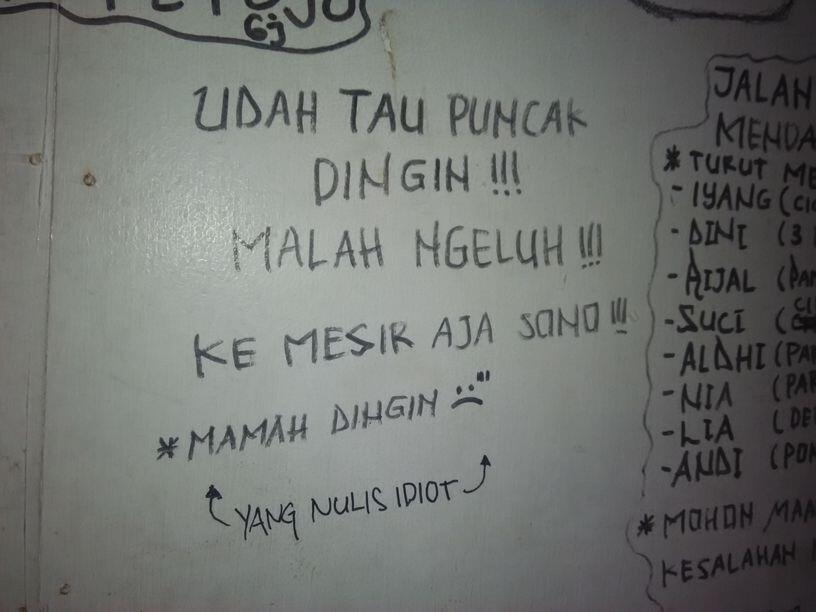 6j
UDAH TAU PUNCAK
DINGIN !!!
MALAH NGELUH !!!
KE MESIR AJA SONO !!!
* MAMAH DINGIN
YANG NULIS IDIOT
JALAN
* TURUT
- IYANG
- DINI (3
- RIJAL
- SUCI
- ALDHI
- NIA
- LIA
- ANDI
* MOHON
KESALAHAN